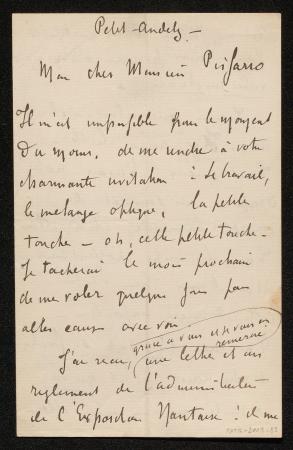 Petit-Andely -
Mon cher Monsieur Pissarro
Il m'est impossible pour le moment
du moins, de me rendre à votre
charmante invitation : le travail,
le mélange optique, la petite
touche - oh, cette petite touche -
Je tacherai le mois prochain
de me voler quelques jours pour
aller causer avec vous
grace à vous et je vous en
remercie
J'ai reçu, une lettre et un
règlement de l'administration
de l'Exposition Nantaise : il me